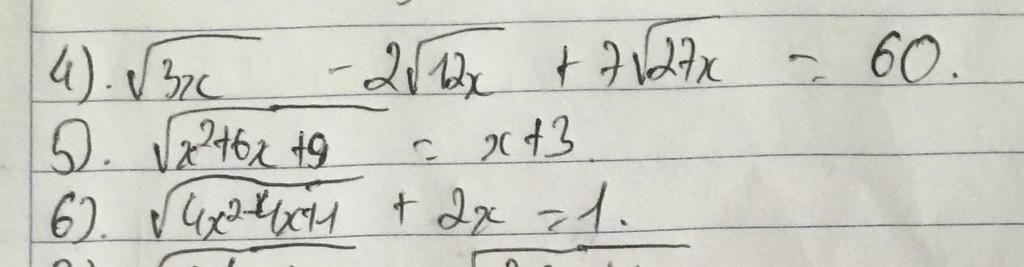 4). √3x - 2√12x + 7√27x = 60.
5). √x²+6x+9 = x+3
6). √4x²-4x+1 + 2x = 1.